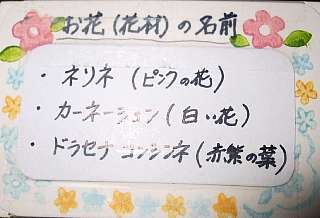 お花(花材)の名前
・ネリネ(ピンクの花)
・カーネーション(白い花)
・ドラセナ コンシンネ(赤紫の葉)